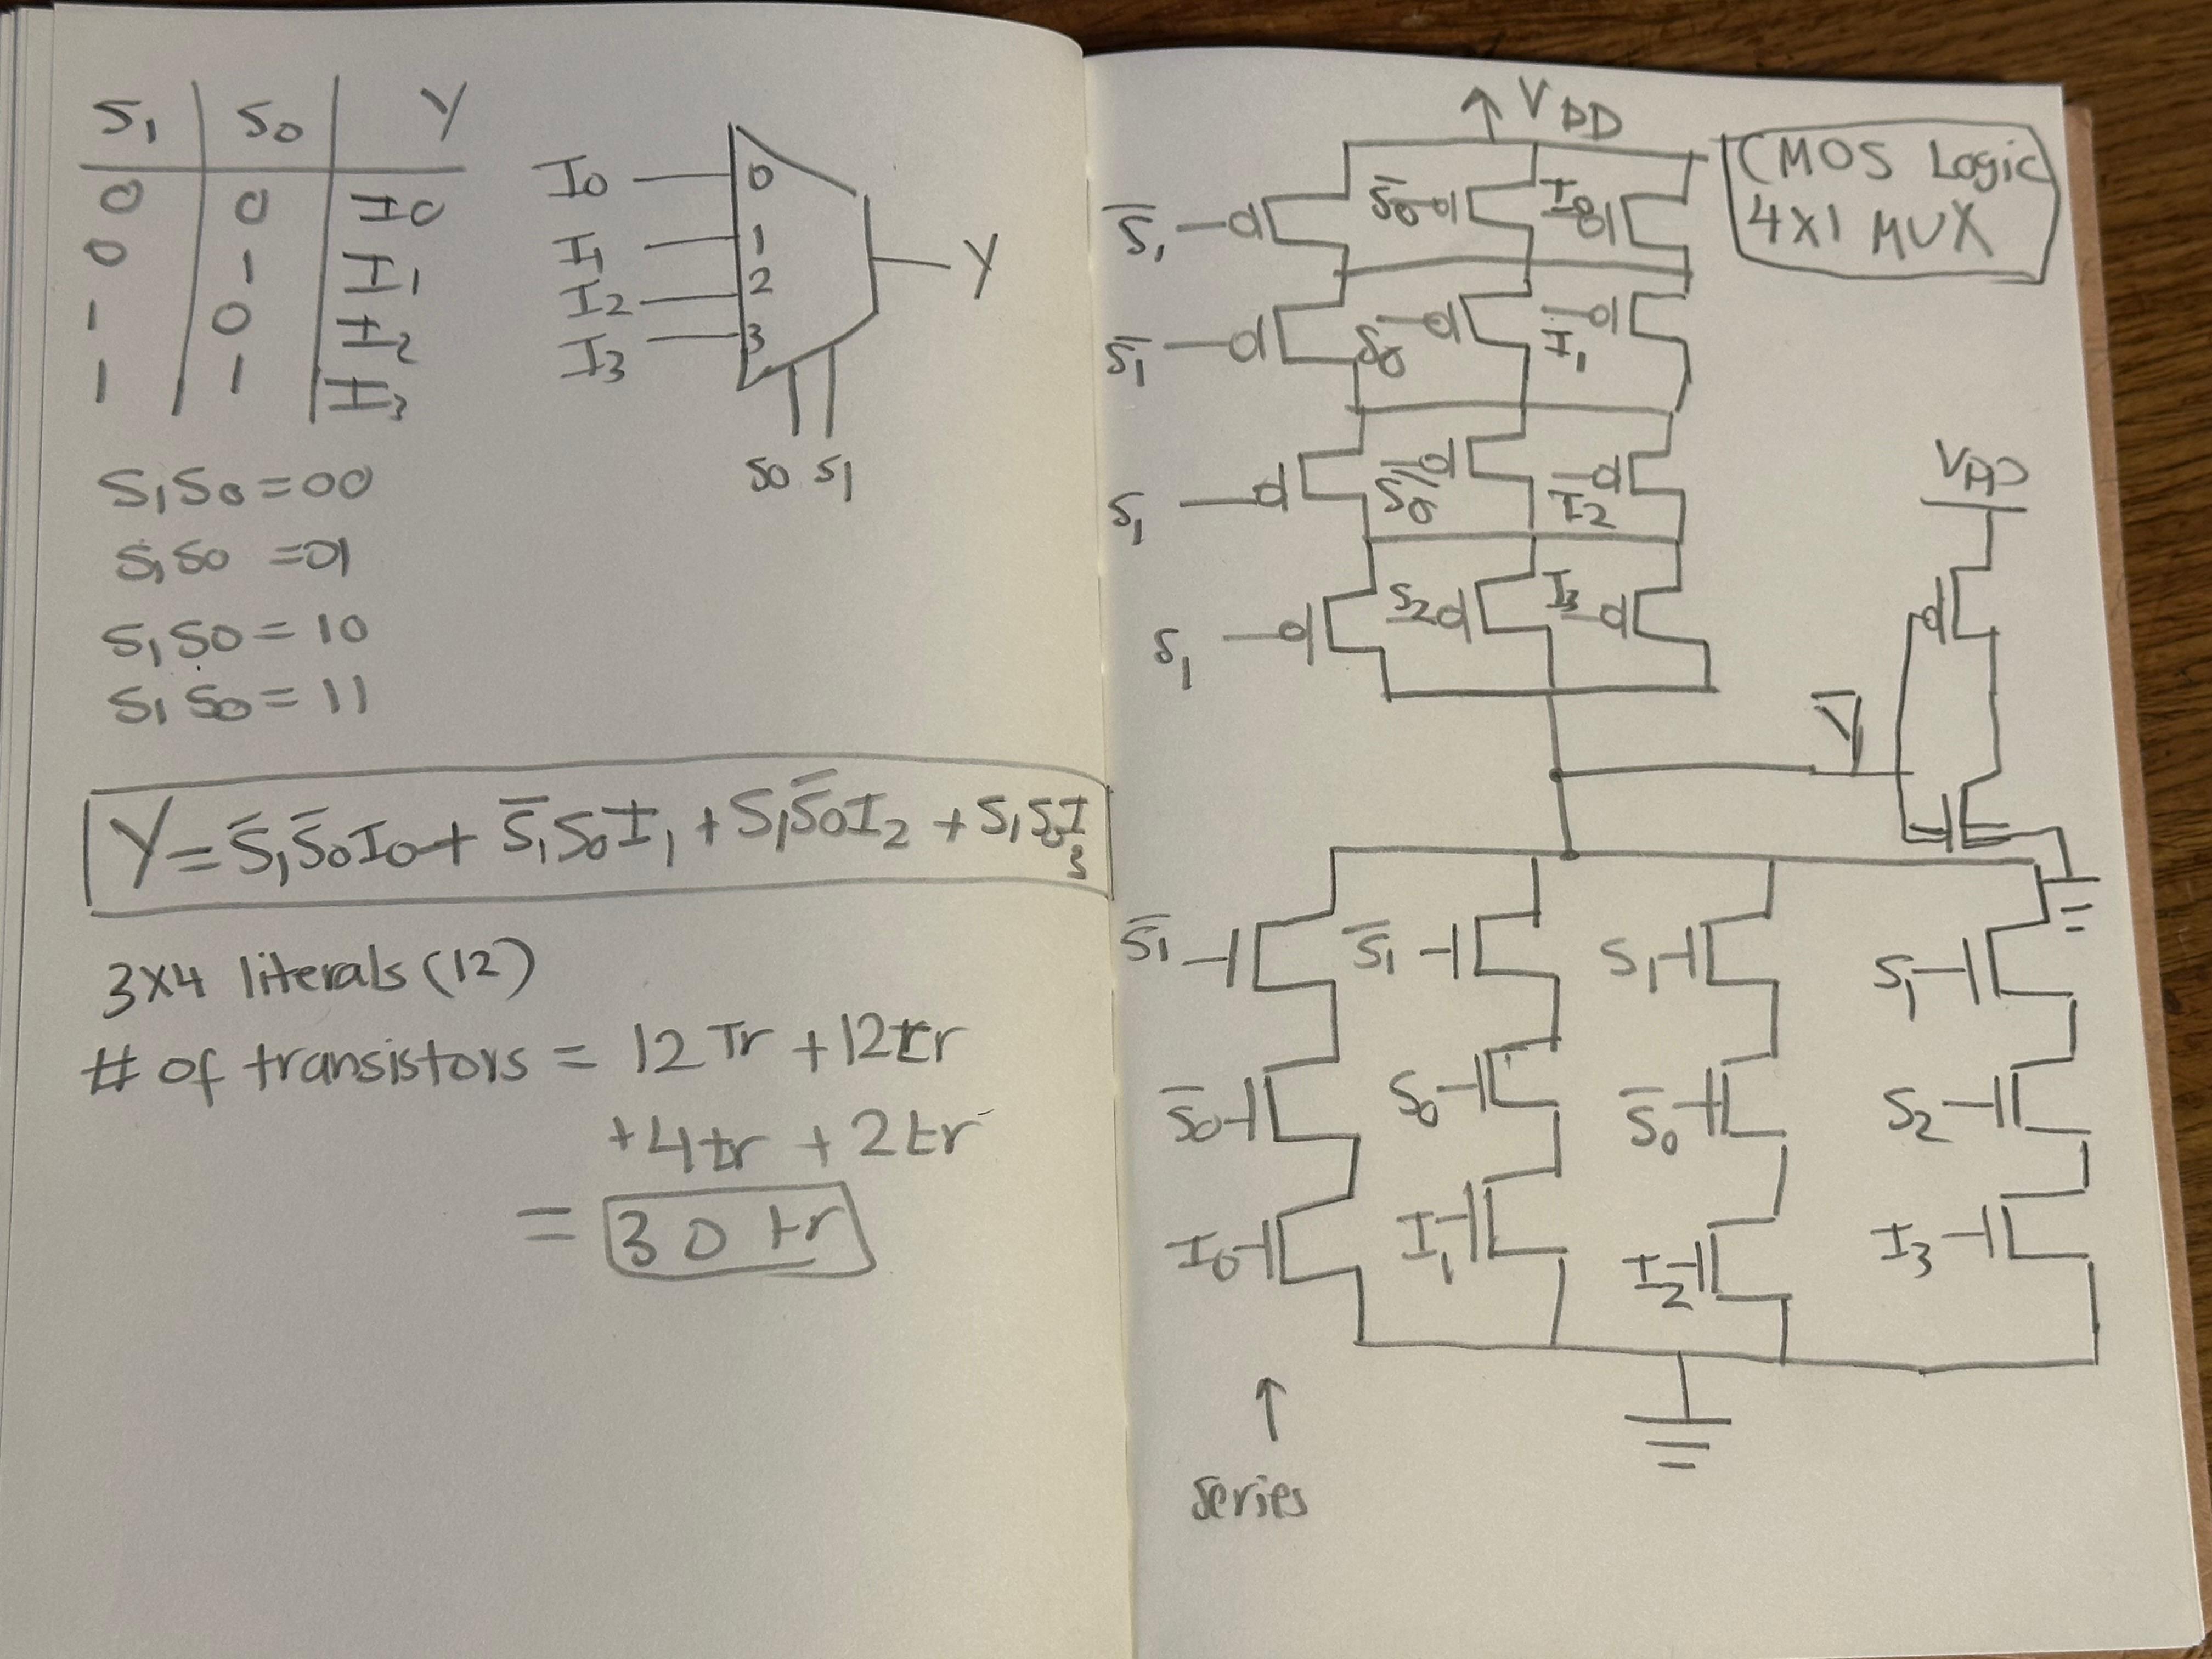 S₁ S₀ Y
0 0 I0
0 1 I₁
1 0 I₂
1 1 I₃
I0 0
I₁ 1
I₂ 2
I3 3
Y
S0 S₁
S₁S₀=00
S₁S0 =01
S₁S0=10
S₁S0=11
Y=S̅₁S̅₀I₀+S̅₁S₀I₁+S₁S̅₀I₂+S₁S₀I₃
3X4 literals(12)
# of transistors = 12 Tr +12tr
+4tr +2tr
= 30 tr
CMOS Logic
4X1 MUX
V DD
S̅₁ S̅₀ I0
S̅₁ S₀ I₁
S₁ S̅₀ I2
S₁ S2 I3
VDD
Y̅
S̅₁ S̅₁ S₁ S₁
S̅₀ S₀ S̅₀ S₂
I₀ I₁ I₂ I₃
series